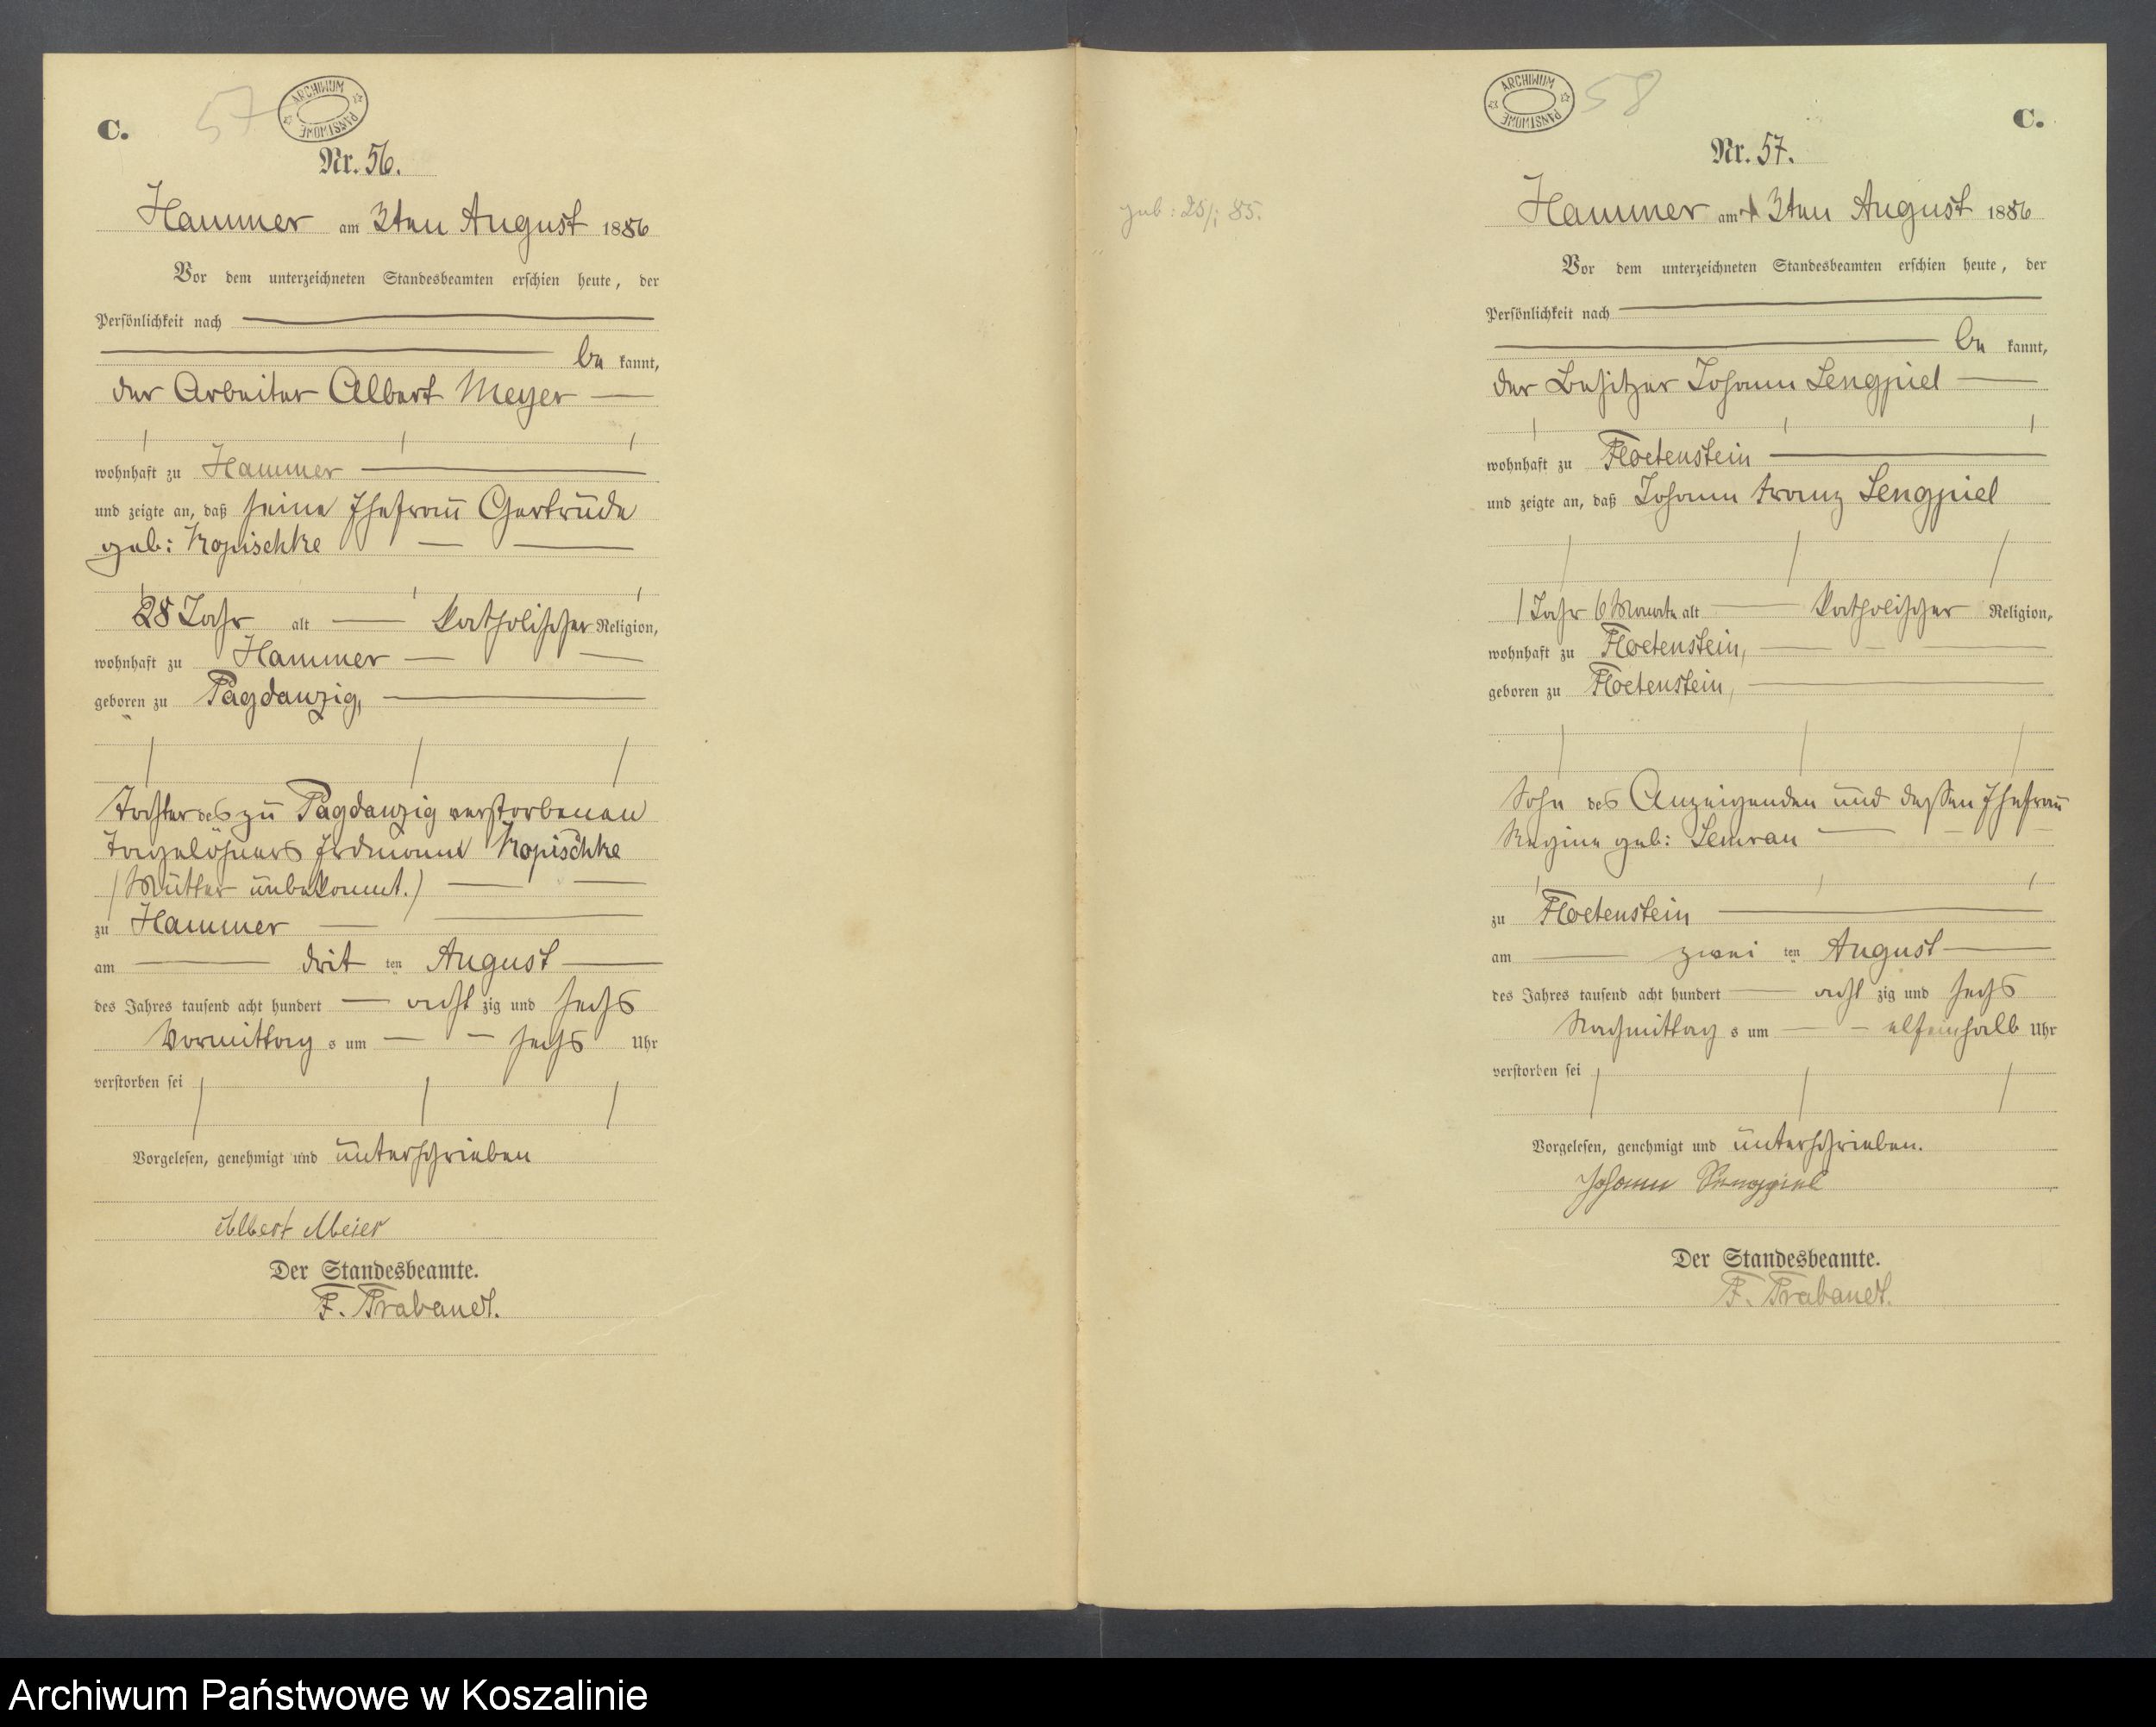 C.
57
ARCHIWUM PAŃSTWOWE
Nr. 56.
Hammer am 3ten August 1886
Vor dem unterzeichneten Standesbeamten erschien heute, der
Persönlichkeit nach
be kannt,
der Arbeiter Albert Meyer
wohnhaft zu Hammer
und zeigte an, daß seine Ehefrau Gertrude
geb: Kopischke
28 Jahr alt katholischer Religion,
wohnhaft zu Hammer
geboren zu Pagdanzig,
Tochter des zu Pagdanzig verstorbenen
Tagelöhners Erdmann Kopischke
(Mutter unbekannt.)
zu Hammer
am drit ten August
des Jahres tausend acht hundert acht zig und sechs
Vormittag s um sechs Uhr
verstorben sei
Vorgelesen, genehmigt und unterschrieben
Albert Meier
Der Standesbeamte.
F. Trabandt.
geb: 25/1 85.
ARCHIWUM PAŃSTWOWE
58
C.
Nr. 57.
Hammer am 3ten August 1886
Vor dem unterzeichneten Standesbeamten erschien heute, der
Persönlichkeit nach
be kannt,
der Besitzer Johann Lengpiel
wohnhaft zu Floetenstein
und zeigte an, daß Johann Franz Lengpiel
1 Jahr 6 Monate alt katholischer Religion,
wohnhaft zu Floetenstein,
geboren zu Floetenstein,
Sohn des Anzeigenden und dessen Ehefrau
Regine geb: Semrau
zu Floetenstein
am zwei ten August
des Jahres tausend acht hundert acht zig und sechs
Nachmittag s um elfeinhalb Uhr
verstorben sei
Vorgelesen, genehmigt und unterschrieben.
Johann Lengpiel
Der Standesbeamte.
F. Trabandt.
Archiwum Państwowe w Koszalinie